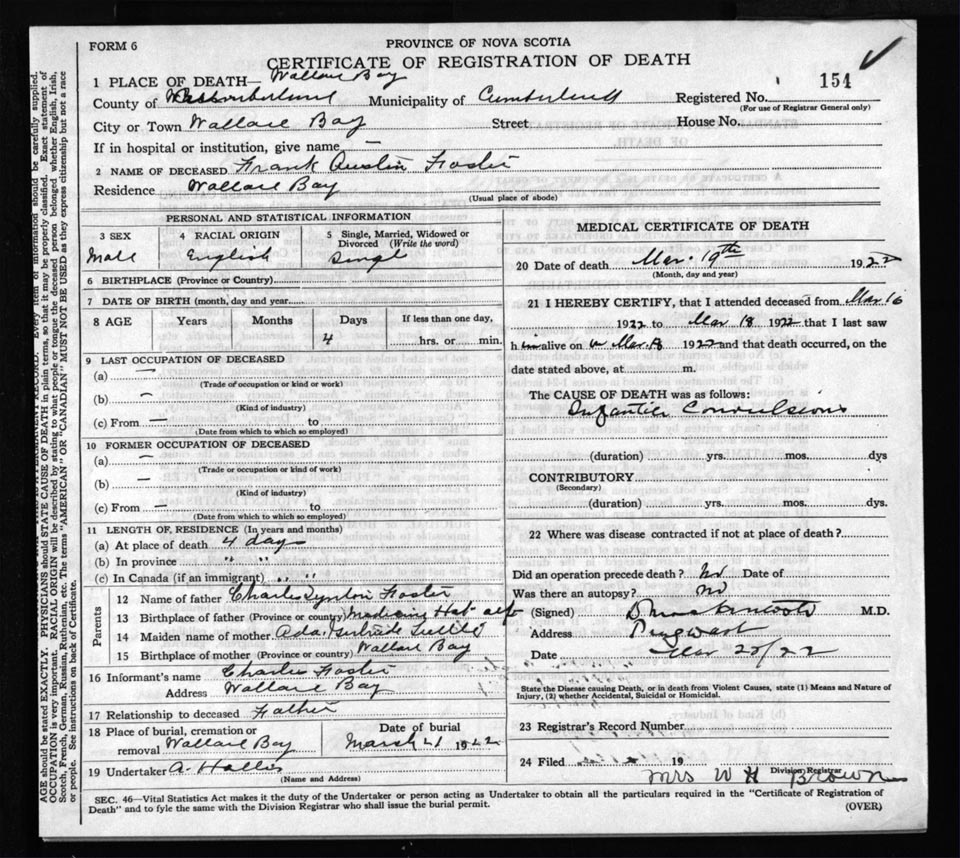 FORM 6
PROVINCE OF NOVA SCOTIA
CERTIFICATE OF REGISTRATION OF DEATH
1 PLACE OF DEATH— Wallace Bay
County of Municipality of Cumberland Registered No. 154
(For use of Registrar General only)
City or Town Wallace Bay Street House No.
If in hospital or institution, give name —
2 NAME OF DECEASED Frank Austin Foster
Residence Wallace Bay
(Usual place of abode)
PERSONAL AND STATISTICAL INFORMATION
3 SEX 4 RACIAL ORIGIN 5 Single, Married, Widowed or
Divorced (Write the word)
Male English Singl
6 BIRTHPLACE (Province or Country)
7 DATE OF BIRTH (month, day and year
8 AGE Years Months Days If less than one day,
4 hrs. or min.
9 LAST OCCUPATION OF DECEASED
(a) —
(Trade of occupation or kind or work)
(b) —
(Kind of industry)
(c) From — to
(Date from which to which so employed)
10 FORMER OCCUPATION OF DECEASED
(a) —
(Trade or occupation or kind of work)
(b) —
(Kind of industry)
(c) From — to
(Date from which to which so employed)
11 LENGTH OF RESIDENCE (In years and months)
(a) At place of death 4 days
(b) In province " "
(c) In Canada (if an immigrant) " "
Parents
12 Name of father Charles Foster
13 Birthplace of father (Province or country) Medicine Hat alta
14 Maiden name of mother Ada Gertrude
15 Birthplace of mother (Province or country) Wallace Bay
16 Informant's name Charles Foster
Address Wallace Bay
17 Relationship to deceased Father
18 Place of burial, cremation or Date of burial
removal Wallace Bay March 21 1922
19 Undertaker A. Hollis
(Name and Address)
MEDICAL CERTIFICATE OF DEATH
20 Date of death Mar. 19th 1922
(Month, day and year)
21 I HEREBY CERTIFY, that I attended deceased from Mar 16
1922 to Mar 18 1922 that I last saw
h im alive on Mar 18 1922 and that death occurred, on the
date stated above, at m.
The CAUSE OF DEATH was as follows:
Infantile Convulsions
(duration) yrs. mos. dys
CONTRIBUTORY
(Secondary)
(duration) yrs. mos. dys.
22 Where was disease contracted if not at place of death?
Did an operation precede death? No Date of
Was there an autopsy? No
(Signed) M.D.
Address Pugwash
Date Mar 20/22
State the Disease causing Death, or in death from Violent Causes, state (1) Means and Nature of
Injury, (2) whether Accidental, Suicidal or Homicidal.
23 Registrar's Record Number
24 Filed 19
Division Registrar
Mrs W H Brown
SEC. 46—Vital Statistics Act makes it the duty of the Undertaker or person acting as Undertaker to obtain all the particulars required in the "Certificate of Registration of
Death" and to fyle the same with the Division Registrar who shall issue the burial permit.
(OVER)
AGE should be stated EXACTLY. PHYSICIANS should STATE CAUSE OF DEATH in plain terms, so that it may be properly classified. Exact statement of
OCCUPATION is very important. RACIAL ORIGIN will be described by stating to what people or tongue the deceased person belonged, whether English, Irish,
Scotch, French, German, Russian, Ruthenian, etc. The terms "AMERICAN" OR "CANADIAN" MUST NOT BE USED as they express citizenship but not a race
or people. See instructions on back of Certificate.